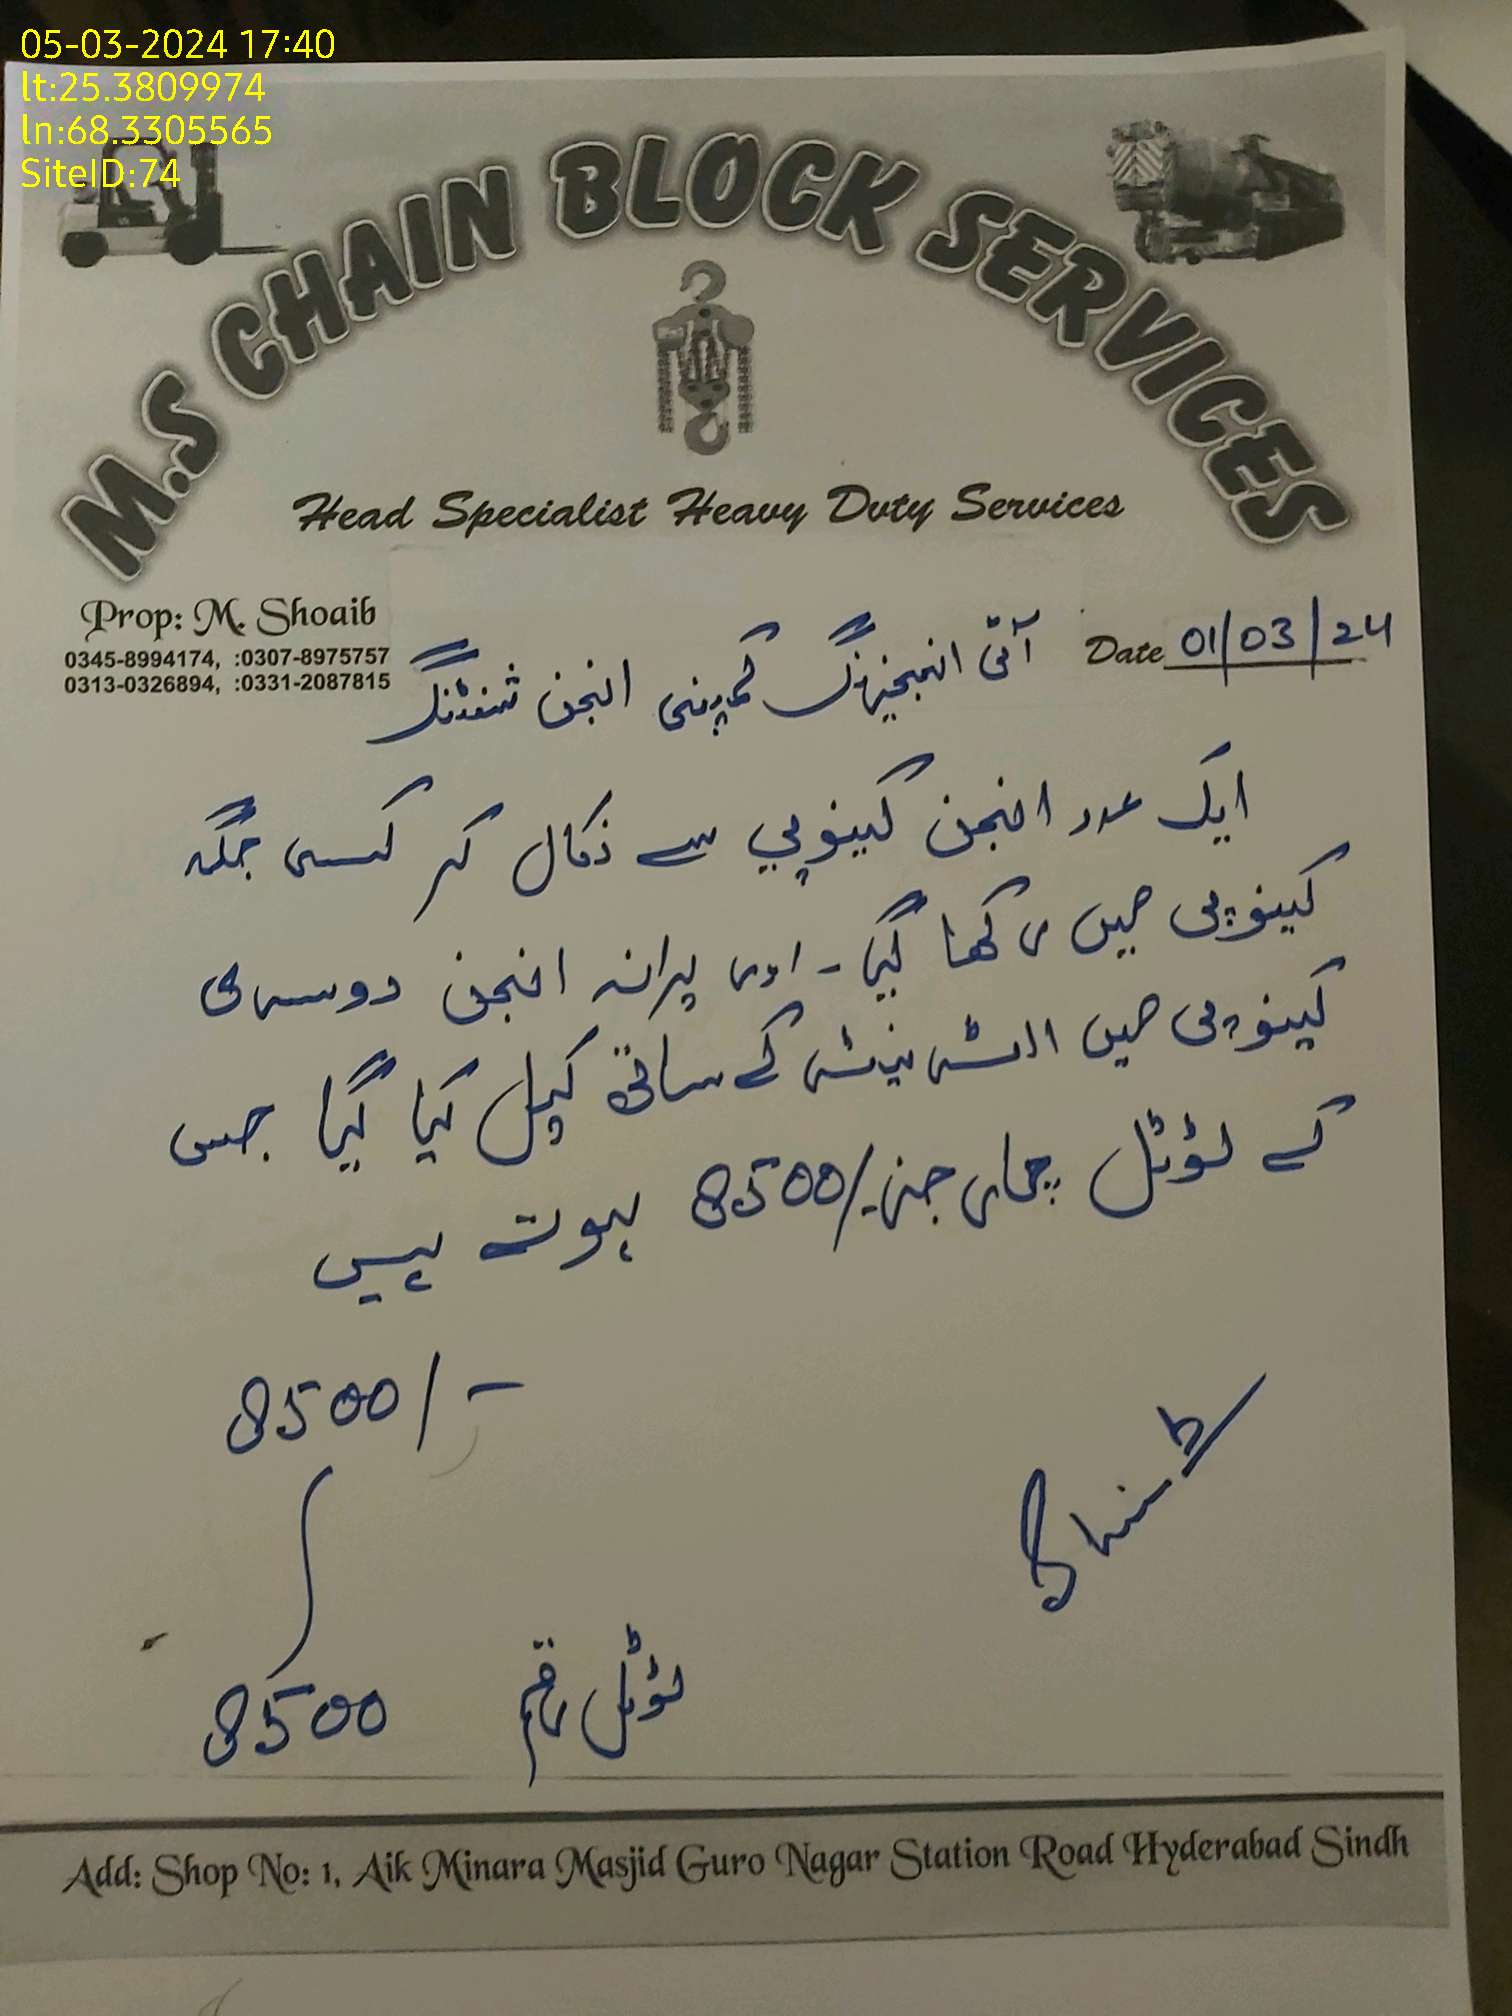 05-03-2024 17:40
lt:25.3809974
ln:68.3305565
SiteID:74
M.S CHAIN BLOCK SERVICES
Head Specialist Heavy Dvty Services
Prop: M. Shoaib
0345-8994174, :0307-8975757
0313-0326894, :0331-2087815
Date 01/03/24
انجینیرنگ کمپنی انجن شفٹنگ
ایک عدد انجن کینوپی سے نکال کر کسی جگہ
کینوپی میں رکھا گیا - اور پرانہ انجن دوسری
کینوپی میں الٹرنیٹر کے ساتھ کپل کیا گیا جس
کے ٹوٹل چارجز 8500/- ہوتے ہیں
8500/-
ٹوٹل رقم 8500
Add: Shop No: 1, Aik Minara Masjid Guro Nagar Station Road Hyderabad Sindh